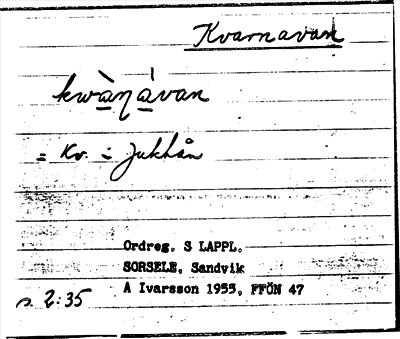 Kvarnavan
kwàŋávan
= Kv. i Jukhån
Ordreg. S LAPPL.
SORSELE, Sandvik
A Ivarsson 1955, FFÖN 47
s. 2:35